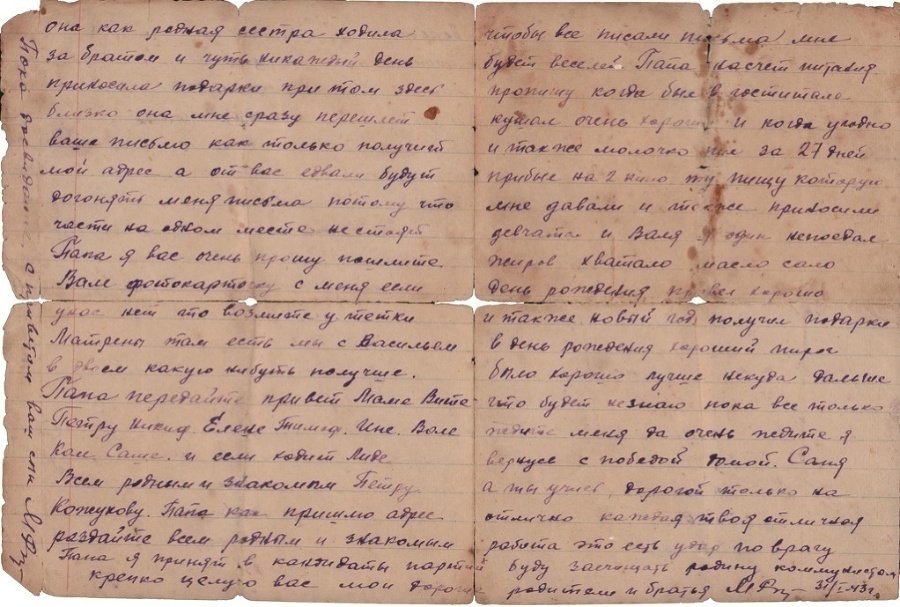 она как родная сестра ходила
за братом и чуть ни каждый день
приносила подарки при том здесь
близко она мне сразу перешлет
ваше письмо как только получит
мой адрес а от вас едвали будут
догонять меня письма потому что
части на одном месте не стоят
Папа я вас очень прошу пошлите
Вале фотокарточку с меня если
у нас нет то возмите у тетки
Матрены там есть мы с Васильем
в двоем какую нибуть получше.
Папа передайте привет Маме Вите
Петру Никиф. Елене Тимоф. Вале
Саше. и если ходит Лиде
Всем родным и знакомым Петру
Кожухову. Папа как пришлю адрес
раздайте всем родным и знакомым
Папа я принят в кандидаты партии
крепко целую вас мои дорогие
Пока досвидание, с приветом ваш сын
чтобы все писали письма мне
будет веселей Папа насчет питания
пропишу когда был в госпитале
кушал очень хорошо и когда угодно
и также молочко пил за 27 дней
прибыл на 2 кило ту пищу которую
мне давали и также приносили
девчата и Валя я один непоедал
жиров хватало масло сало
день рождения провел хорошо
и также новый год получил подарки
в день рождения хороший пирог
было хорошо лучше некуда дальше
что будет незнаю пока все только
ждите меня да очень ждите я
вернусь с победой домой. Саня
а ты учись, дорогой только на
отлично каждая твоя отличная
работа это есть удар по врагу
буду защищать родину коммунистом
родители и братья 31/I 43г.